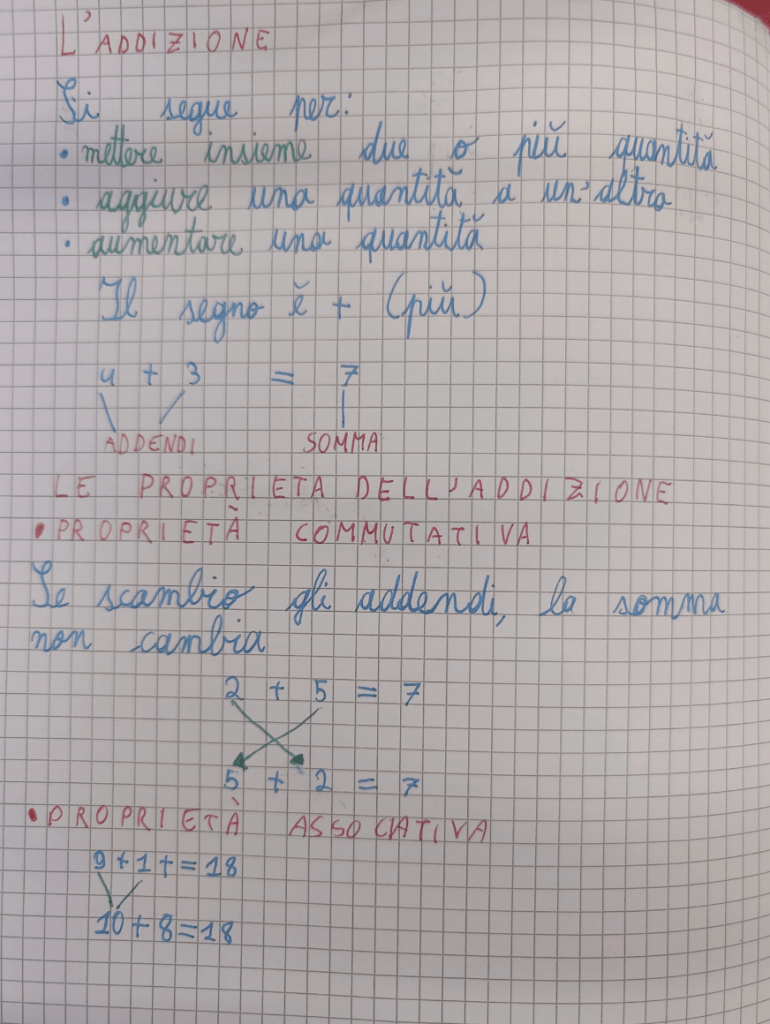 L'ADDIZIONE
Si segue per:
• mettere insieme due o più quantità
• aggiure una quantità a un'altra
• aumentare una quantità
Il segno è + (più)
4 + 3 = 7
ADDENDI SOMMA
LE PROPRIETÀ DELL'ADDIZIONE
• PROPRIETÀ COMMUTATIVA
Se scambio gli addendi, la somma
non cambia
2 + 5 = 7
5 + 2 = 7
• PROPRIETÀ ASSOCIATIVA
9+1+=18
10+8=18